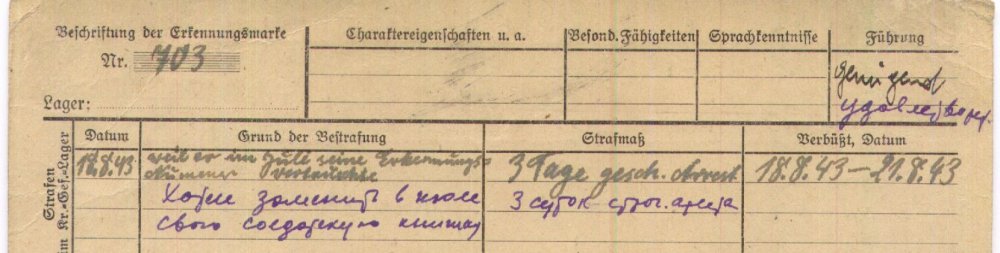 Beschriftung der Erkennungsmarke
Nr. 703
Lager:
Charaktereigenschaften u. a.
Besond. Fähigkeiten
Sprachkenntnisse
Führung
genügend
Strafen
im Kr.-Gef.-Lager
Datum
Grund der Bestrafung
Strafmaß
Verbüßt, Datum
18.8.43
weil er im seine Erkennungs-
Nummer
3 Tage gesch. Arrest
18.8.43 – 21.8.43
Хотел заменить в июле
3 суток строг. ареста
свою солдатскую книжку